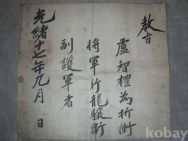 敎旨
盧智為折衝
將軍行龍驤衛
副護軍者
光緒十七年九月 日
kobay